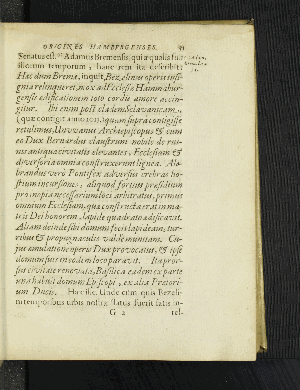 ORIGINES HAMBURGENSES.
Senatus est. Adamus Bremensis, qui æqualis fuit
istorum temporum, hanc rem ita describit:
Hæc dum Bremæ, inquit, Bezelinus opera insi-
gnia relinqueret, mox ad Ecclesiæ Hammabur-
gensis ædificationem toto cordis amore accin-
gitur. Ibi enim post cladem Sclavanicam,
(quæ contigit anno 1012) quam supra contigisse
retulimus, Unwanus Archiepiscopus & cum
eo Dux Bernardus claustrum nobile de rui-
nis antiquæ civitatis elevantes, Ecclesiam &
diversoria omnia construxerunt lignea. Ala-
brandus vero Pontifex adversus crebras ho-
stium incursiones, aliquod fortius præsidium
pro inopia necessarium loci arbitratus, primo
omnium Ecclesiam, quæ constructa erat in ma-
tris Dei honorem, lapide quadrato ædificavit.
Aliam deinde sibi domum fecit lapideam, tur-
ribus & propugnaculis valde munitam. Cu-
jus æmulatione operis Dux provocatus, & ipse
domum suis in eodem loco paravit. Ita pror-
sus civitate renovata, Basilica eadem ex parte
una habuit domum Episcopi, ex alia Prætori-
um Ducis. Hæc ille. Unde cum quis Bezeli-
ni temporibus urbis nostræ status fuerit satis in-
G 2